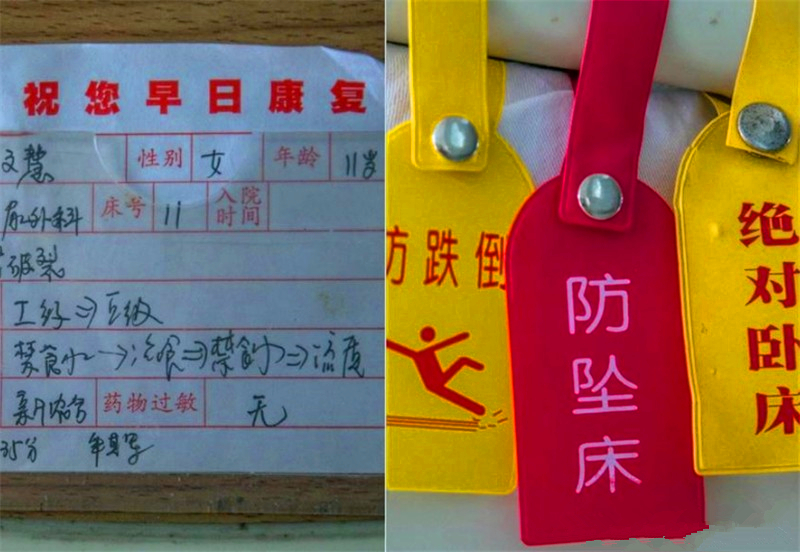 祝您早日康复
文慧 性别 女 年龄 11岁
外科 床号 11 入院时间
破裂
工级⇒Ⅱ级
禁食水→流食⇒禁食水⇒流质
药物过敏 无
35分
防跌倒
防坠床
绝对卧床